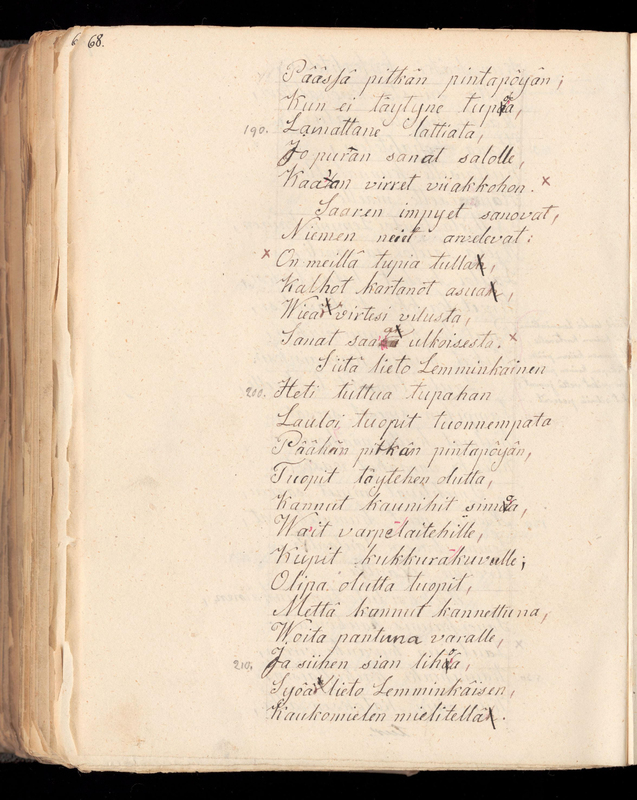 68.
Päässä pitkän pintapöyän;
Kun ei täytyne tupoa,
190. Lainattane lattiata,
Jo puran sanat salolle,
Kaa'an virret viiakkohon. ×
Saaren impyet sanovat,
Niemen neiet arvelevat:
× On meillä tupia tulla,
Kalhot kartanot asua,
Wiea' virtesi vilusta,
Sanat saa'a ulkoisesta. ×
Siitä lieto Lemminkäinen
200. Heti tultua tupahan
Lauloi tuopit tuonnempata
Päähän pitkän pintapöyän,
Tuopit täytehen olutta,
Kannut kaunihit simoa,
Wa'it varpelaitehille,
Kupit kukkurakuvulle;
Olipa olutta tuopit,
Mettä kannut kannettuna,
Woita pantuna varalle,
210. Ja siihen sian lihoa,
Syöä' lieto Lemminkäisen,
Kaukomielen mielitellä.